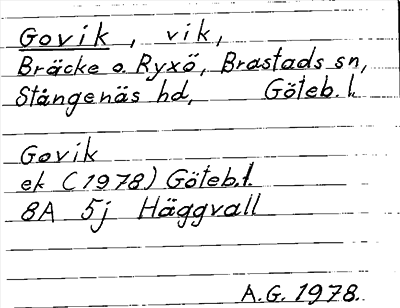 Govik, vik,
Bräcke o. Ryxö, Brastads sn,
Stångenäs hd, Göteb. l.
Govik
ek (1978) Göteb.l.
8A 5j Häggvall
A.G. 1978.